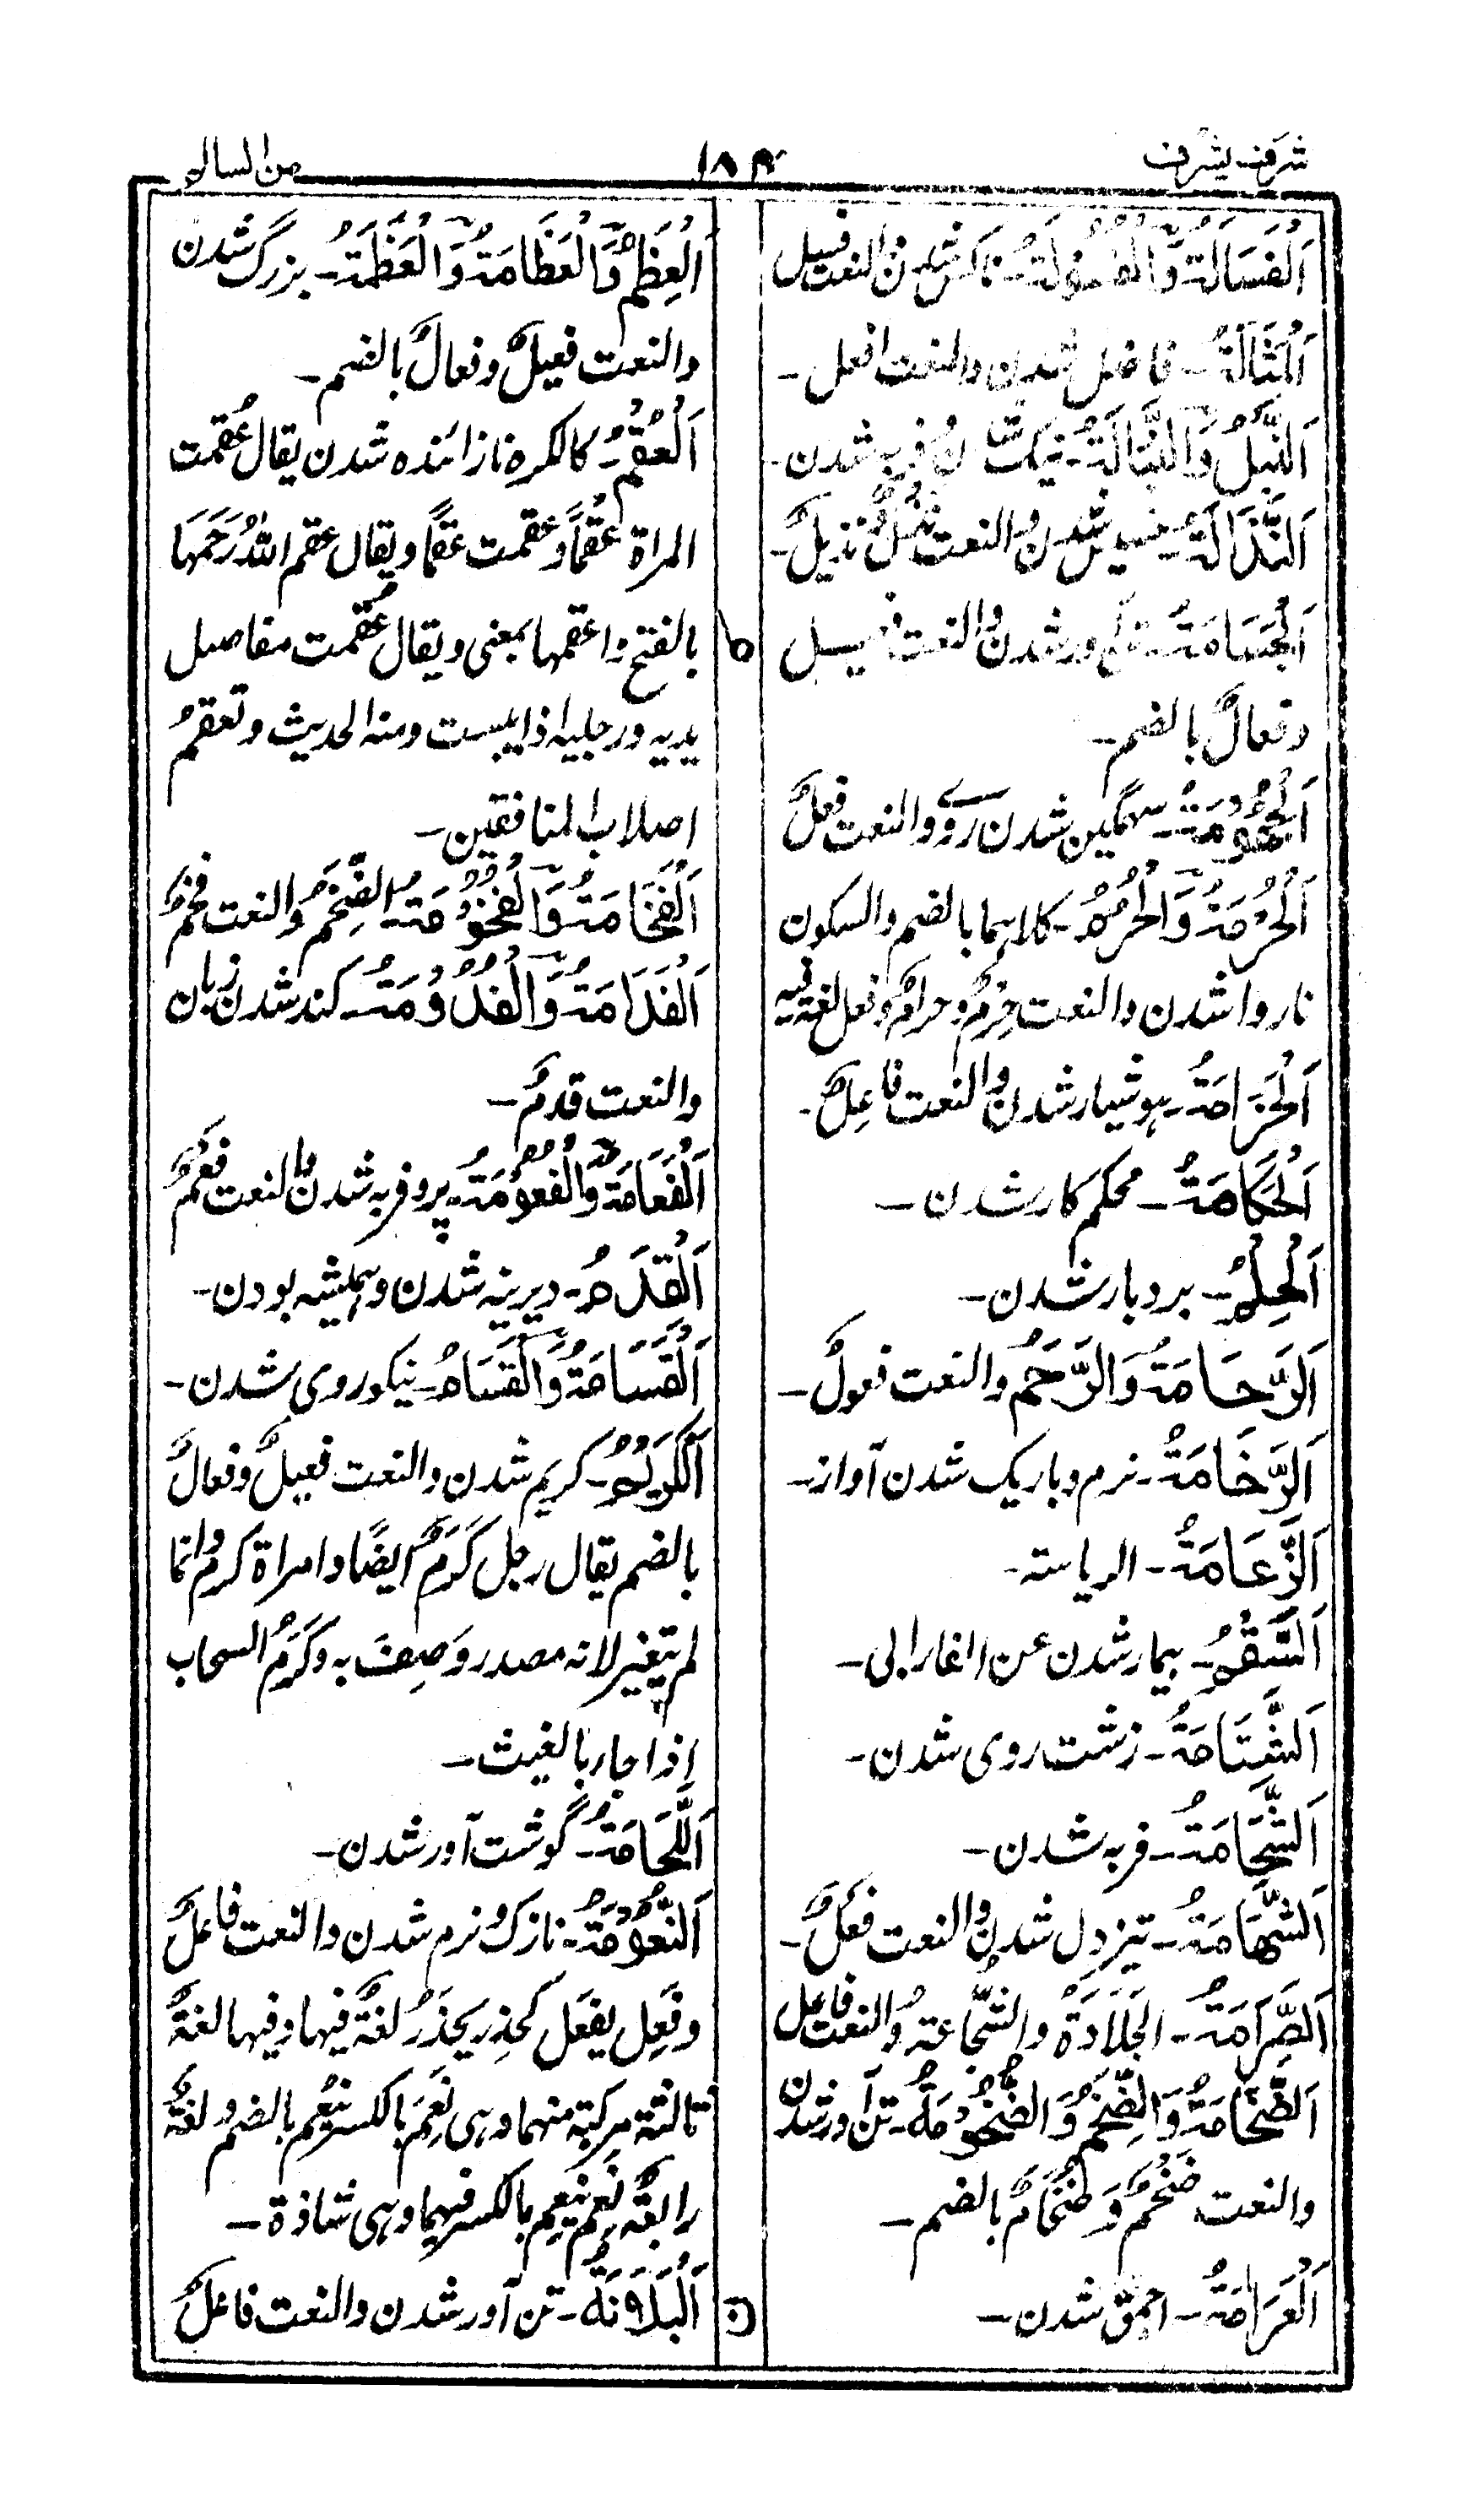 شرف يشرف
۱۸۴
من السالم
اَلْفَسَالَةُ وَالْفُسُوْلَةُ۔ ناکس شدن والنعت فسيل
اَلْمَثَالَةُ۔ فاضل شدن والنعت افعل۔
اَلنُّبْلُ وَالنَّبَالَةُ۔ نیک شدن و فربه شدن۔
اَلنَّذَالَةُ۔ خسیس شدن والنعت نَذْلٌ ونذيلٌ۔
اَلْجَسَامَةُ۔ تن آور شدن والنعت فعيل
م
وفعالٌ بالضم۔
اَلْجُهُوْمَةُ۔ سهمگین شدن روے والنعت فعلٌ
اَلْحُرْمَةُ وَالْحُرْمُ۔ كلاهما بالضم والسكون
ناروا شدن والنعت حِرْمٌ وحرامٌ وفعل لغة فيه
اَلْحَزَامَةُ۔ هوشیار شدن والنعت فاعِلٌ۔
اَلْحَكَامَةُ۔ محکم کار شدن۔
اَلْحِلْمُ۔ بردبار شدن۔
اَلرَّحَامَةُ وَالرَّحَمُ والنعت فعولٌ۔
اَلرَّخَامَةُ۔ نرم و باریک شدن آواز۔
اَلزَّعَامَةُ۔ الرياسة۔
اَلسَّقَمُ۔ بیمار شدن عن الفارابی۔
اَلشَّتَامَةُ۔ زشت روی شدن۔
اَلشَّحَامَةُ۔ فربه شدن۔
اَلشَّهَامَةُ۔ تیز دل شدن والنعت فَعْلٌ۔
اَلصَّرَامَةُ۔ الجَلَادَةُ والشَّجاعة والنعت فاعل
اَلضَّخَامَةُ وَالضِّخَمُ وَالضُّخُوْمَةُ۔ تن آور شدن
والنعت ضَخْمٌ وَضُخَامٌ بالضم۔
اَلْعَرَامَةُ۔ احمق شدن۔
اَلْعِظَمُ وَالْعَظَامَةُ وَالْعَظَمَةُ۔ بزرگ شدن
والنعت فعيلٌ وفعالٌ بالضم۔
اَلْعُقْمُ۔ كالكره نازائنده شدن يقال عُقمت
المراة عُقمًا وعقمت عقمًا ويقال عقم اللهُ رَحَمَهَا
بالفتح واعقمها بمعنى ويقال عُقمت مفاصل
يديه ورجليه اذا يبست ومنه الحديث وتعقمُ
اصلاب المنافقين۔
اَلْفَخَامَةُ وَالْفُخُوْمَةُ۔ الضِّخَمُ والنعت فخمٌ
اَلْفَدَامَةُ وَالْفُدُوْمَةُ۔ کند شدن زبان
والنعت فدمٌ۔
اَلْفَعَامَةُ وَالْفُعُوْمَةُ۔ پر و فربه شدن والنعت فعمٌ
اَلْقِدَمُ۔ دیرینه شدن و همیشه بودن۔
اَلْقَسَامَةُ وَالْقَسَامُ۔ نیکو روی شدن۔
اَلْكَرَمُ۔ کریم شدن والنعت فعيلٌ وفعالٌ
بالضم يقال رجل كَرَمٌ ايضًا وامراة كرم وانما
لم يتغير لانه مصدر وَصِفَ به وكَرُمَ السحاب
اِذا جاء بالغيث۔
اَللَّحَامَةُ۔ گوشت آور شدن۔
اَلنُّعُوْمَةُ۔ نازک و نرم شدن والنعت فاعلٌ
وفَعِل يفعَل كحذِر يحذَر لغةٌ فيها وفيها لغةٌ
ثالثة مركبة منهما وهي نَعِمَ بالكسر ينعُم بالضم ولغةٌ
رابعةٌ نَعِمَ ينعِم بالكسر فيهما وهي شاذة۔
ن
اَلْبَدَانَةُ۔ تن آور شدن والنعت فاعلٌ